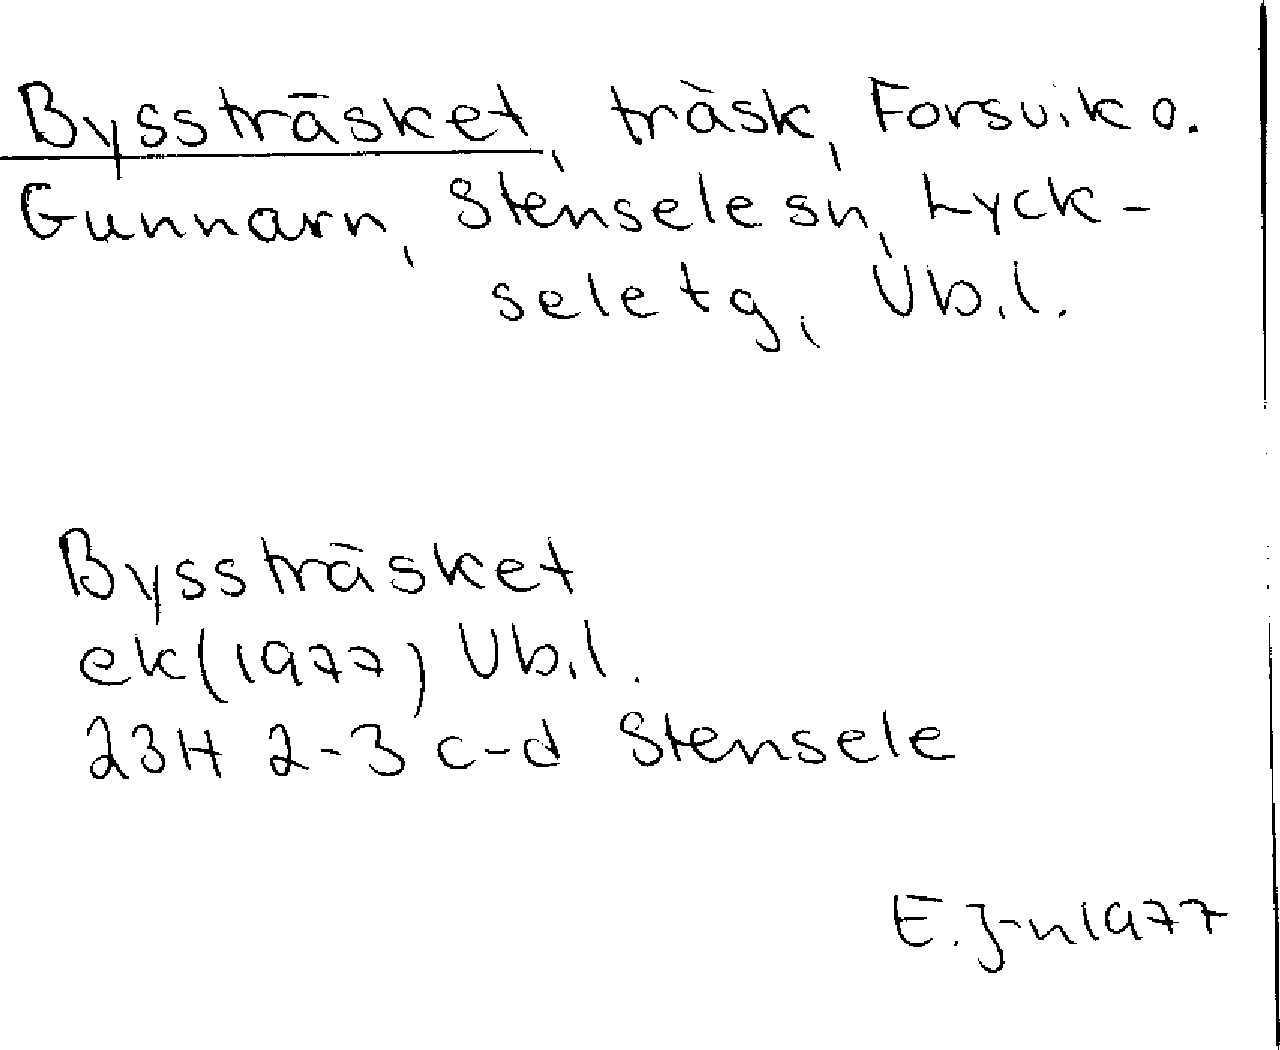 Byssträsket, träsk, Forsvik o.
Gunnarn, Stensele sn, Lyck-
sele tg, Vb.l.
Byssträsket
ek (1977) Vb.l.
23H 2-3 c-d Stensele
E. J-n 1977